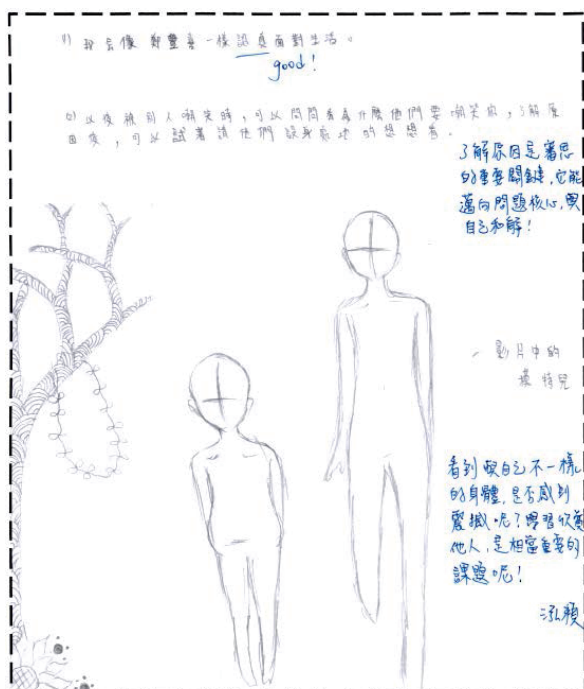 (1) 我會像鄭豐喜一樣認真面對生活。
good!
(2) 以後被別人嘲笑時，可以問問看為什麼他們要嘲笑你，了解原
因後，可以試著請他們設身處地的想想看。
了解原因是審思
的重要關鍵，它能
邁向問題核心，與
自己和解！
影片中的
模特兒
看到與自己不一樣
的身體，是否感到
震撼呢？學習欣賞
他人，是相當重要的
課題呢！